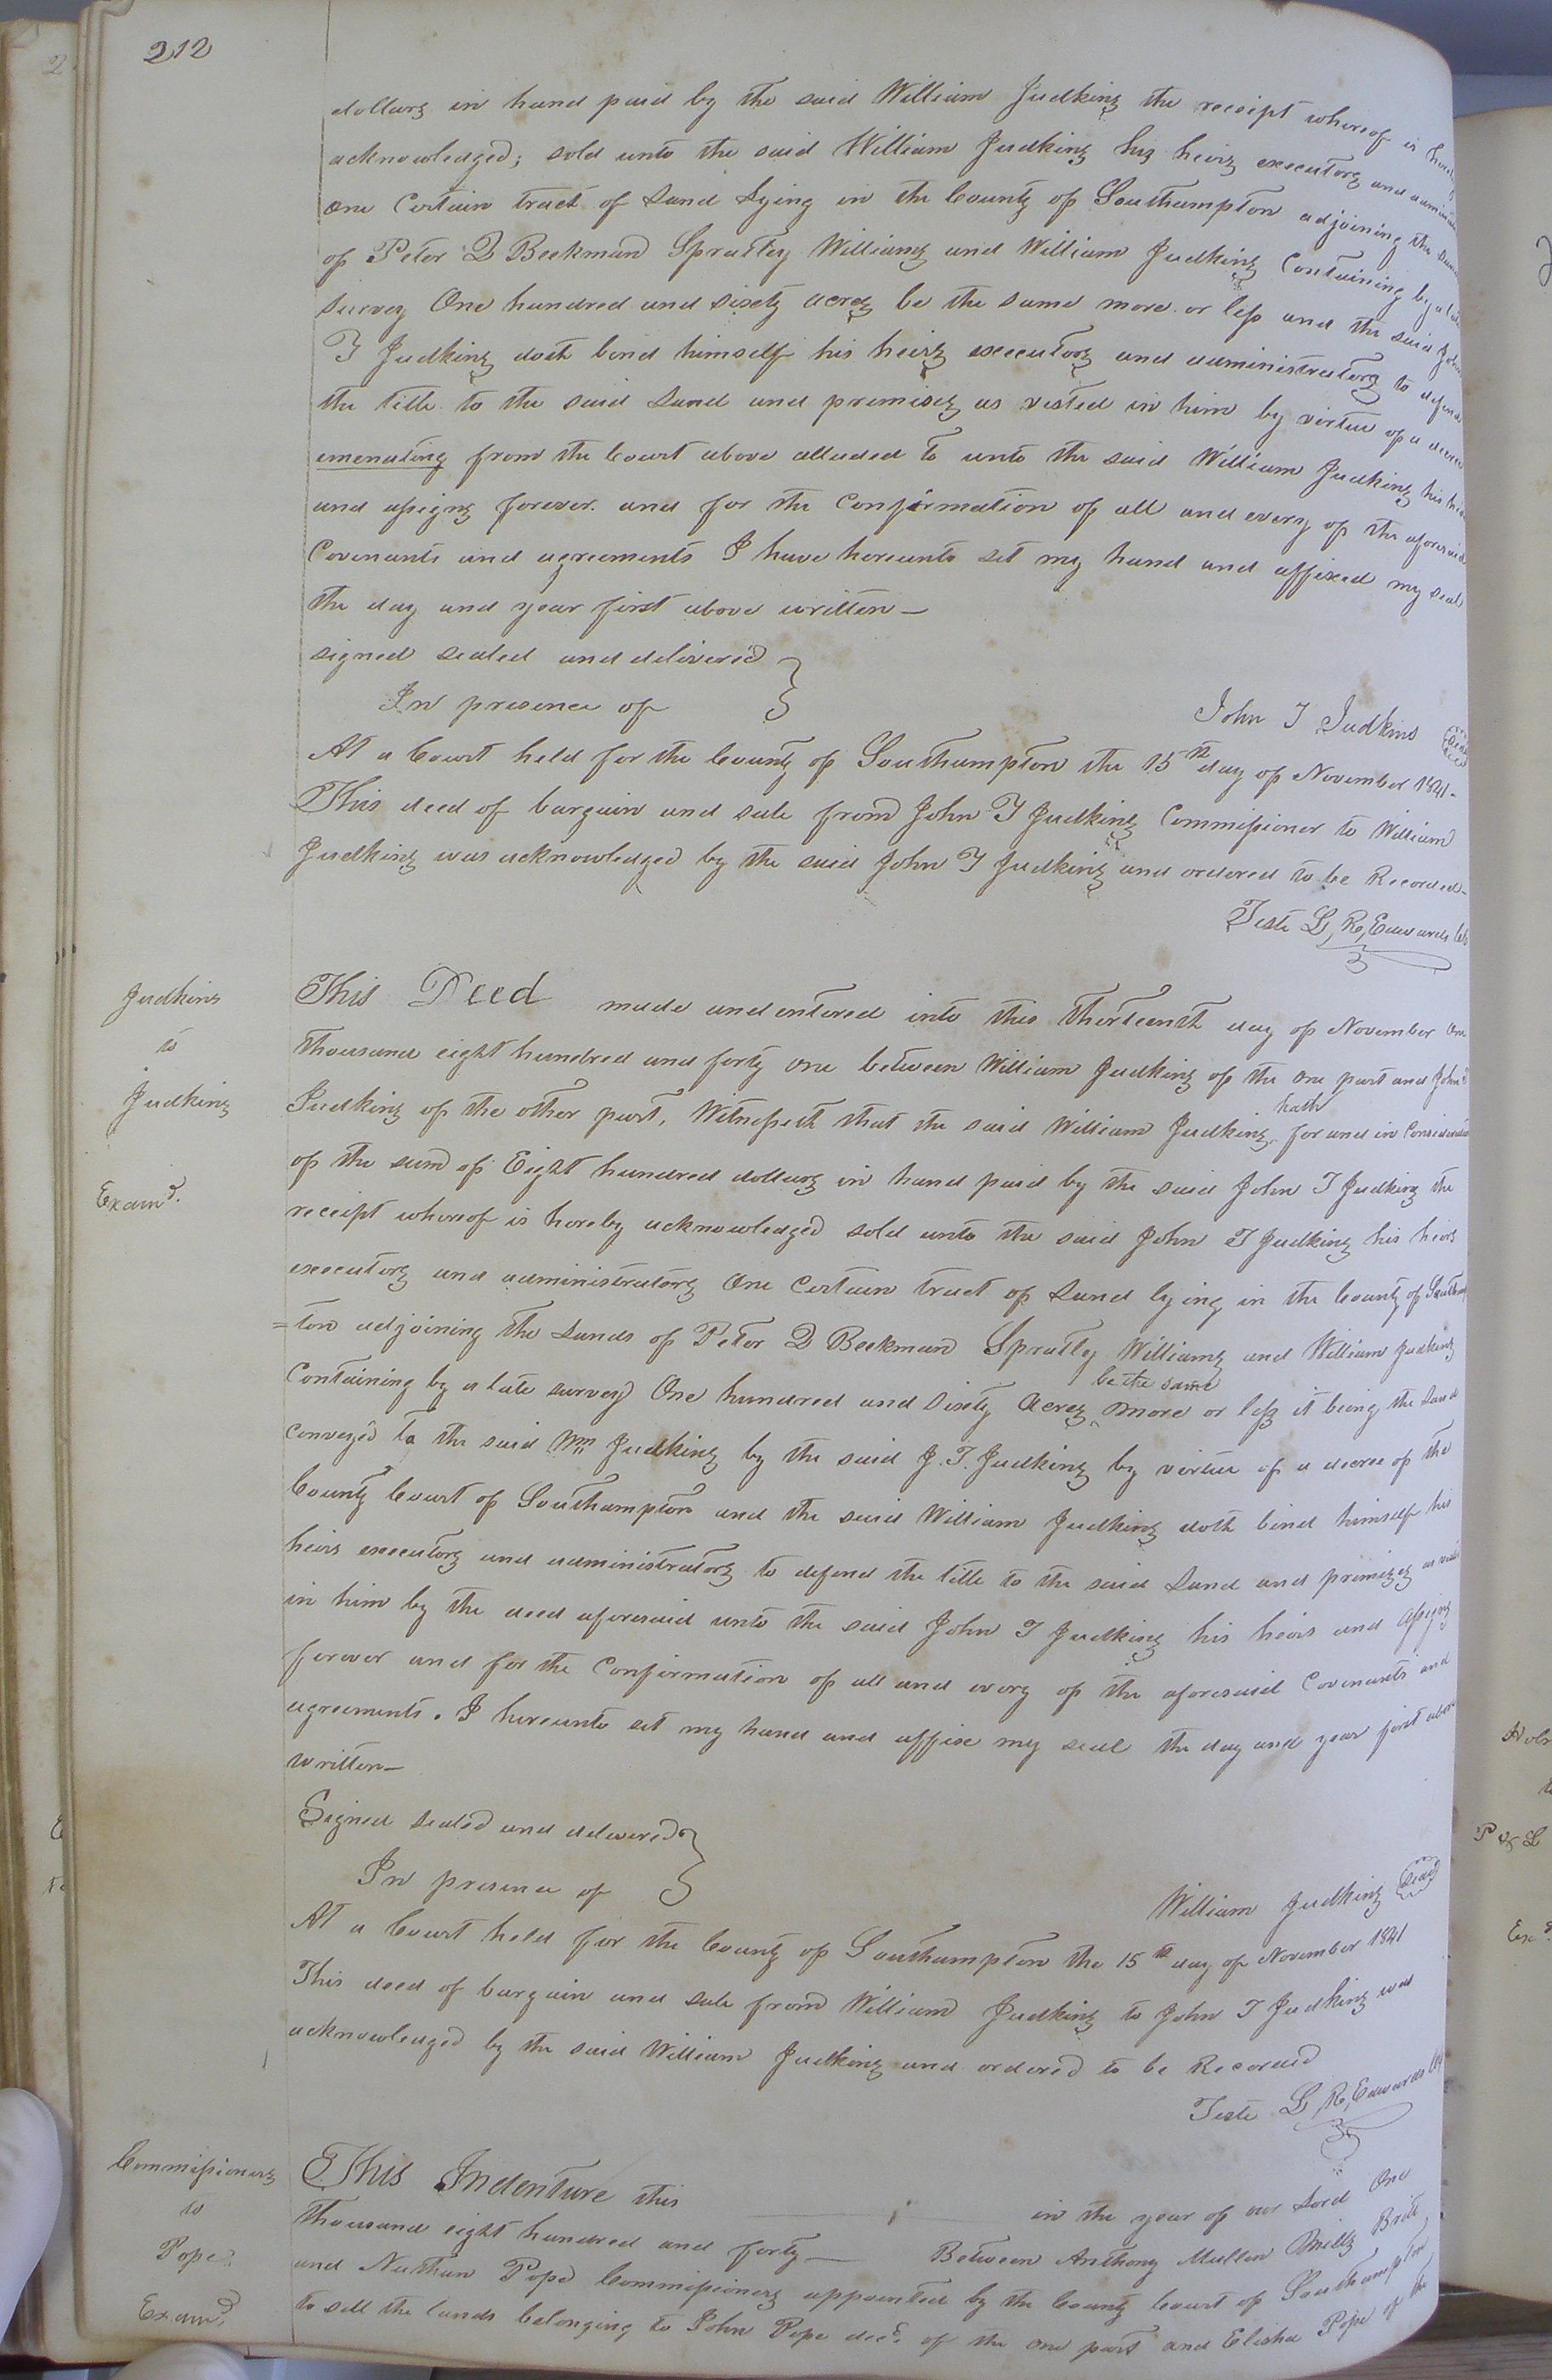 212
dollars in hand paid by the said William Judkins the receipt whereof is
acknowledged; sold unto the said William Judkins his heirs executors and
one Certain tract of Land Lying in the County of Southampton adjoining the
of Peter D Beekman Spratley Williams and William Judkins Containing by a late
survey One hundred and sixty acres be the same more or less and the said John
T Judkins doth bind himself his heirs executors and administrators to defend
the title to the said Land and premises as vested in him by virtue of a decree
emenating from the Court above alluded to unto the said William Judkins his heirs
and assigns forever. and for the Confirmation of all and every of the aforesaid
Covenants and agreements I have hereunto set my hand and affixed my seal
the day and year first above written—
signed sealed and delivered }
In presence of
John T Judkins seal
At a Court held for the County of Southampton the 15th day of November 1841-
This deed of bargain and sale from John T Judkins Commissioner to William
Judkins was acknowledged by the said John T Judkins and ordered to be Recorded-
Teste L, R, Edwards
Judkins
to
Judkins
Examd.
This Deed made and entered into this thirteenth day of November One
thousand eight hundred and forty one between William Judkins of the one part and John T
Judkins of the other part, Witnesseth that the said William Judkins hath for and in Consideration
of the sum of Eight hundred dollars in hand paid by the said John T Judkins the
receipt whereof is hereby acknowledged sold unto the said John T Judkins his heirs
executors and administrators One Certain tract of Land lying in the County of Southamp
=ton adjoining the Lands of Peter D Beekman Spratley Williams and William Judkins
Containing by a late survey One hundred and Sixty Acres be the same more or less it being the Land
conveyed to the said Wm Judkins by the said J. T. Judkins by virtue of a decree of the
County Court of Southampton and the said William Judkins doth bind himself his
heirs executors and administrators to defend the title to the said Land and premises as
in him by the deed aforesaid unto the said John T Judkins his heirs and assigns
forever and for the Confirmation of all and every of the aforesaid Covenants and
agreements. I hereunto set my hand and affix my seal the day and year first above
written—
Signed sealed and delivered }
In presence of
William Judkins seal
At a Court held for the County of Southampton the 15th day of November 1841
This deed of bargain and sale from William Judkins to John T Judkins was
acknowledged by the said William Judkins and ordered to be Recorded
Teste L, R, Edwards
Commissioners
to
Pope.
Examd.
This Indenture this in the year of our Lord One
thousand eight hundred and forty— Between Anthony Mullen Mills Britt
and Nathan Pope Commissioners appointed by the County Court of Southampton
to sell the lands belonging to John Pope decd. of the one part and Elisha Pope of the